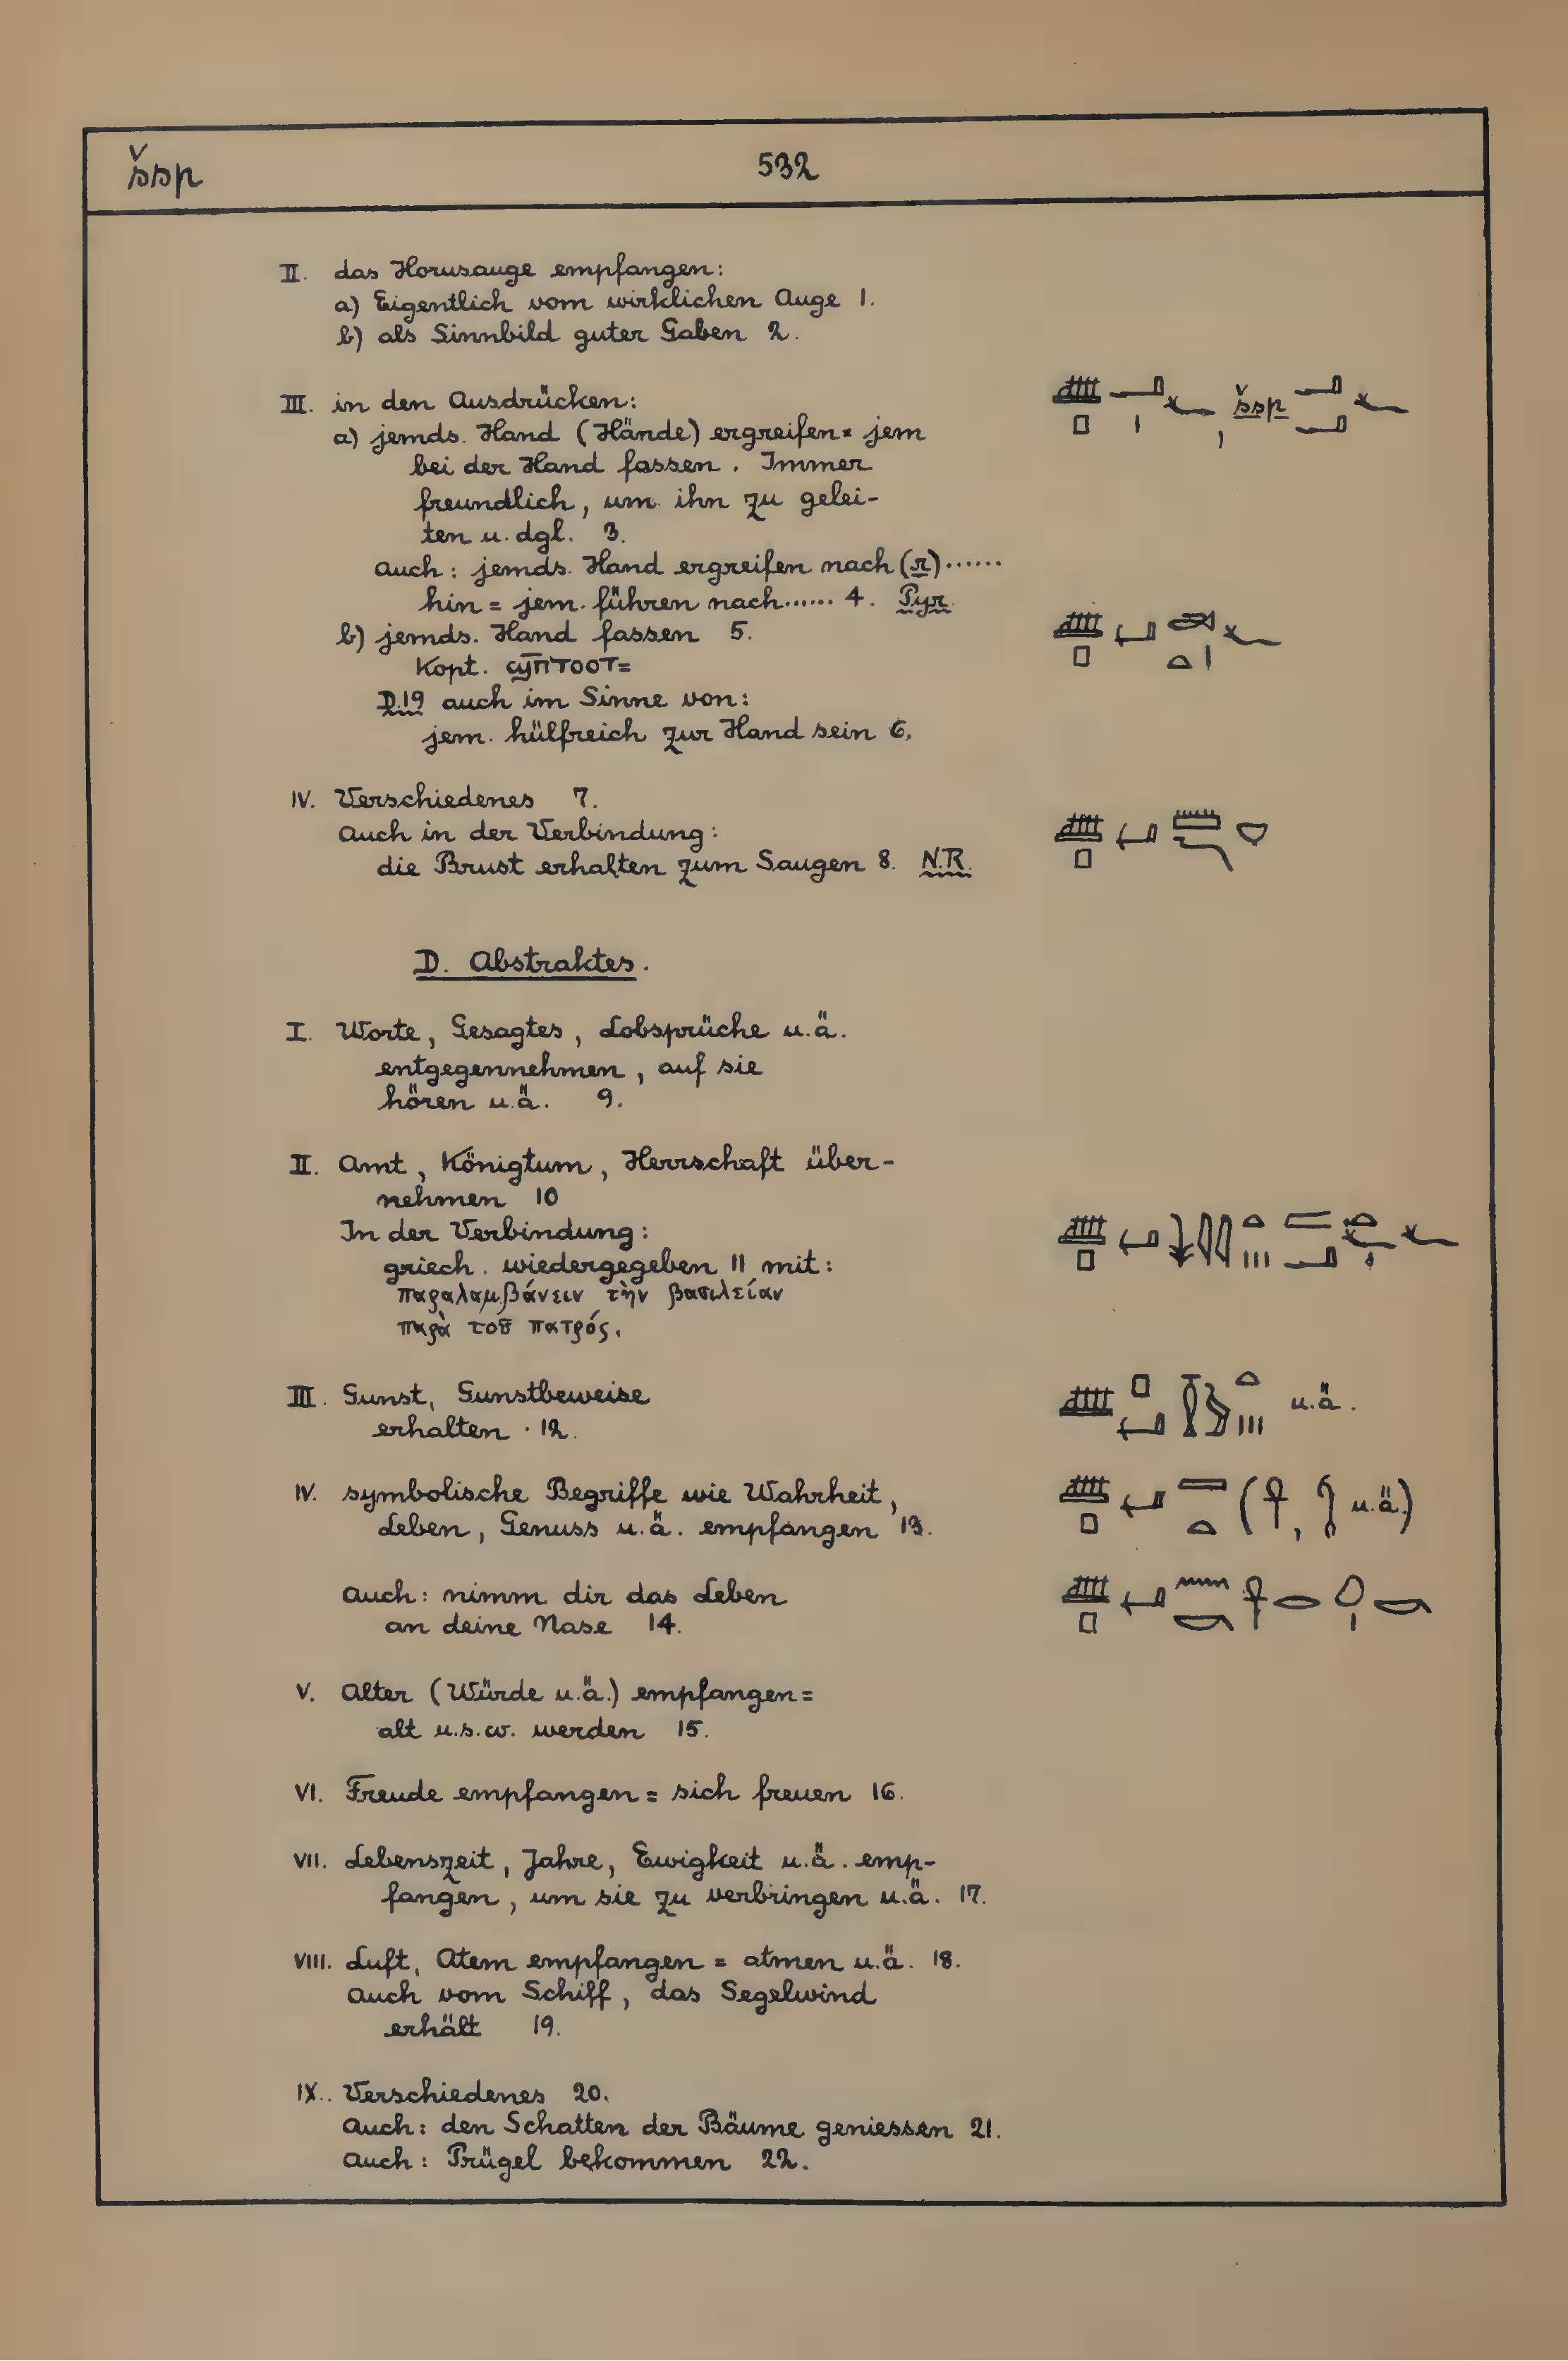 šsp
532
II. das Horusauge empfangen:
a) Eigentlich vom wirklichen Auge 1.
b) als Sinnbild guter Gaben 2.
III. in den Ausdrücken:
a) jemds. Hand (Hände) ergreifen = jem
, šsp
bei der Hand fassen. Immer
freundlich, um ihn zu gelei-
ten u. dgl. 3.
Auch: jemds. Hand ergreifen nach (r)......
hin = jem. führen nach...... 4. Pyr.
b) jemds. Hand fassen 5.
Kopt. ϣⲡⲧⲟⲟⲧ=
D.19 auch im Sinne von:
jem. hülfreich zur Hand sein 6.
IV. Verschiedenes 7.
Auch in der Verbindung:
die Brust erhalten zum Saugen 8. N.R.
D. Abstraktes.
I. Worte, Gesagtes, Lobsprüche u.ä.
entgegennehmen, auf sie
hören u.ä. 9.
II. Amt, Königtum, Herrschaft über-
nehmen 10
In der Verbindung:
griech. wiedergegeben 11 mit:
παραλαμβάνειν τὴν βασιλείαν
παρὰ τοῦ πατρός.
III. Gunst, Gunstbeweise
u.ä.
erhalten. 12.
IV. symbolische Begriffe wie Wahrheit,
( , u.ä.)
Leben, Genuss u.ä. empfangen 13.
Auch: nimm dir das Leben
an deine Nase 14.
V. Alter (Würde u.ä.) empfangen =
alt u.s.w. werden 15.
VI. Freude empfangen = sich freuen 16.
VII. Lebenszeit, Jahre, Ewigkeit u.ä. emp-
fangen, um sie zu verbringen u.ä. 17.
VIII. Luft, Atem empfangen = atmen u.ä. 18.
Auch vom Schiff, das Segelwind
erhält 19.
IX. Verschiedenes 20.
Auch: den Schatten der Bäume geniessen 21.
Auch: Prügel bekommen 22.